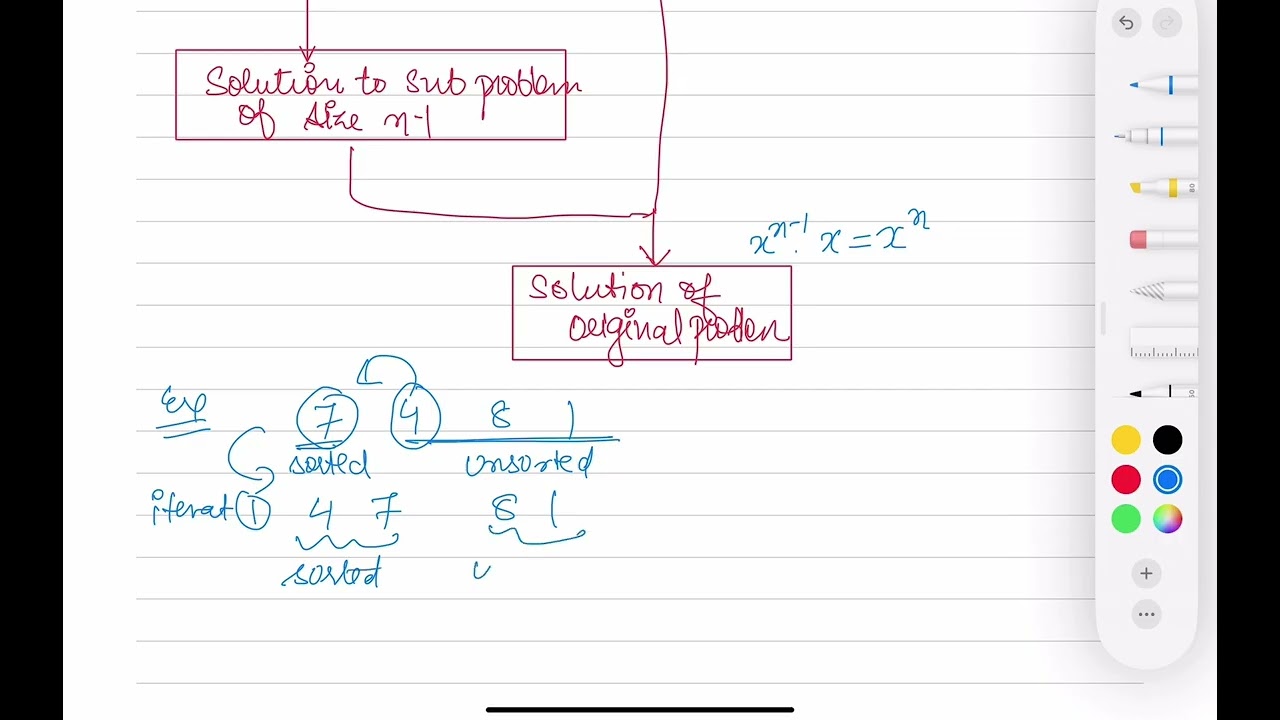 Solution to sub problem
of size n-1
xⁿ⁻¹. x = xⁿ
Solution of
original problem
Exp 7 4 8 1
sorted unsorted
iterat ① 4 7 8 1
sorted U